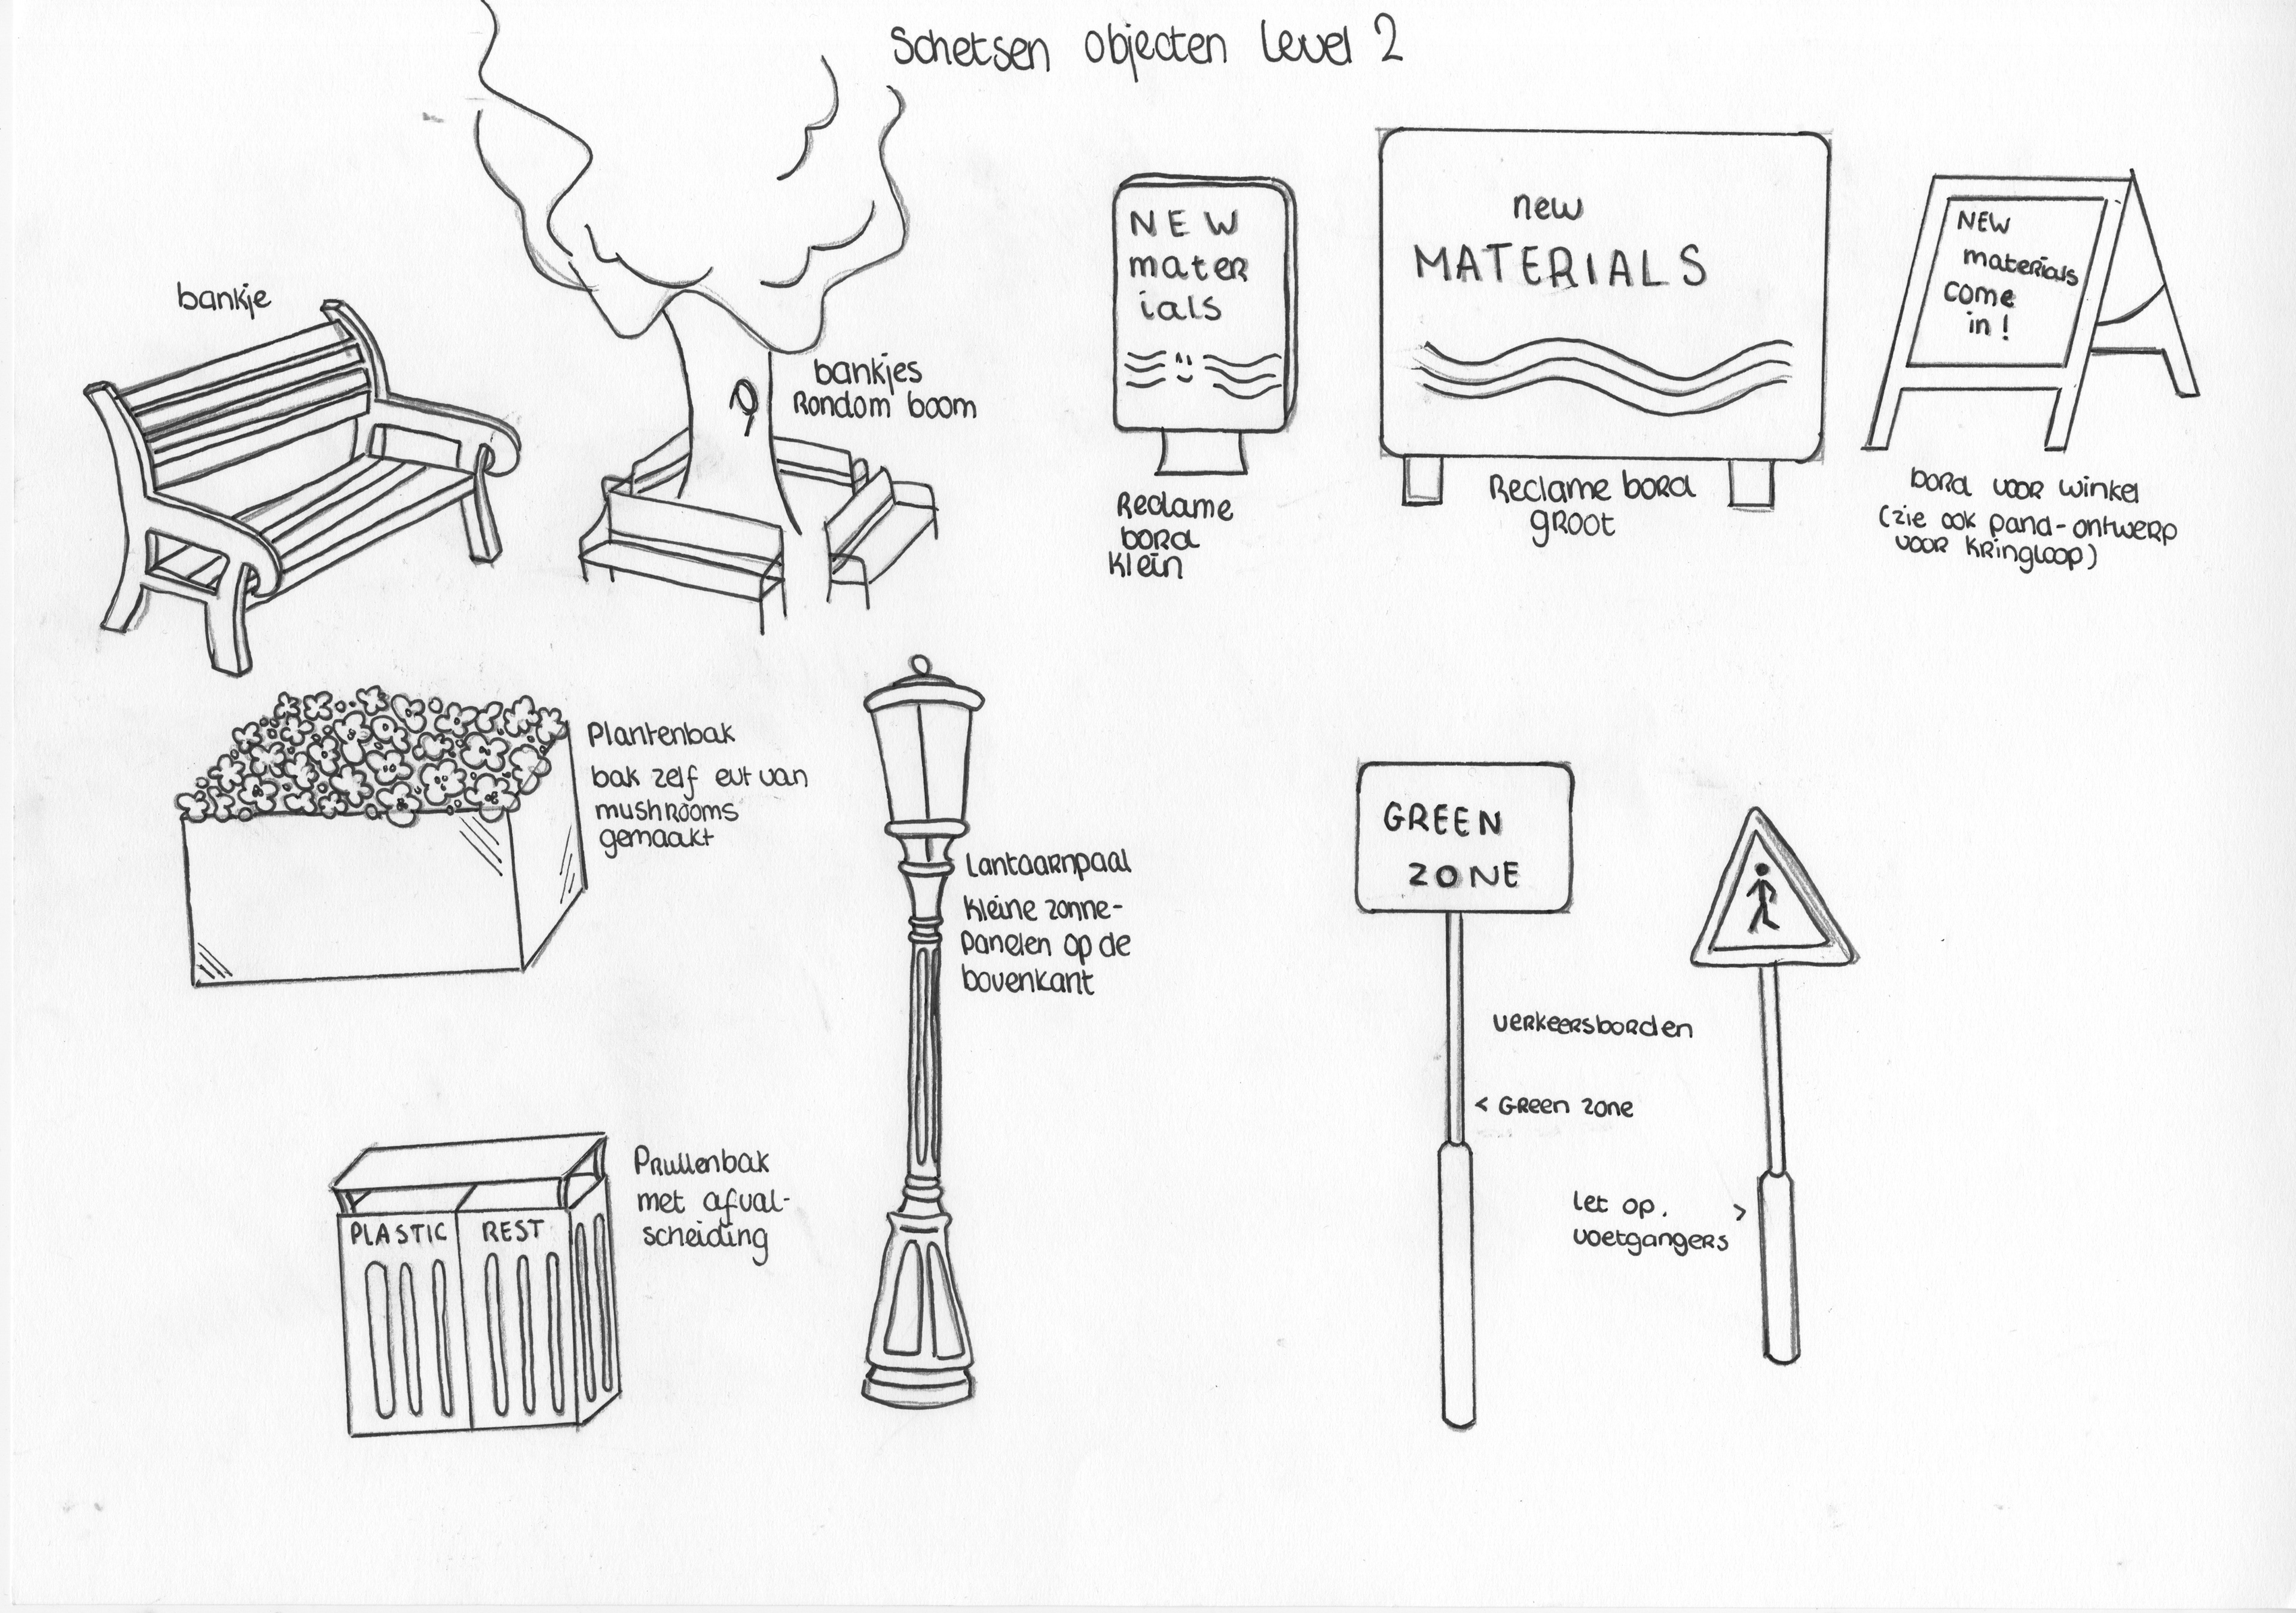 Schetsen objecten Level 2
bankje
bankjes
Rondom boom
NEW
mater
ials
Reclame
bord
klein
new
MATERIALS
Reclame bord
groot
NEW
materials
come
in!
bord voor winkel
(zie ook pand-ontwerp
voor kringloop)
Plantenbak
bak zelf evt van
mushrooms
gemaakt
Lantaarnpaal
kleine zonne-
panelen op de
bovenkant
GREEN
ZONE
verkeersborden
< Green zone
let op. >
voetgangers
PLASTIC REST
Prullenbak
met afval-
scheiding